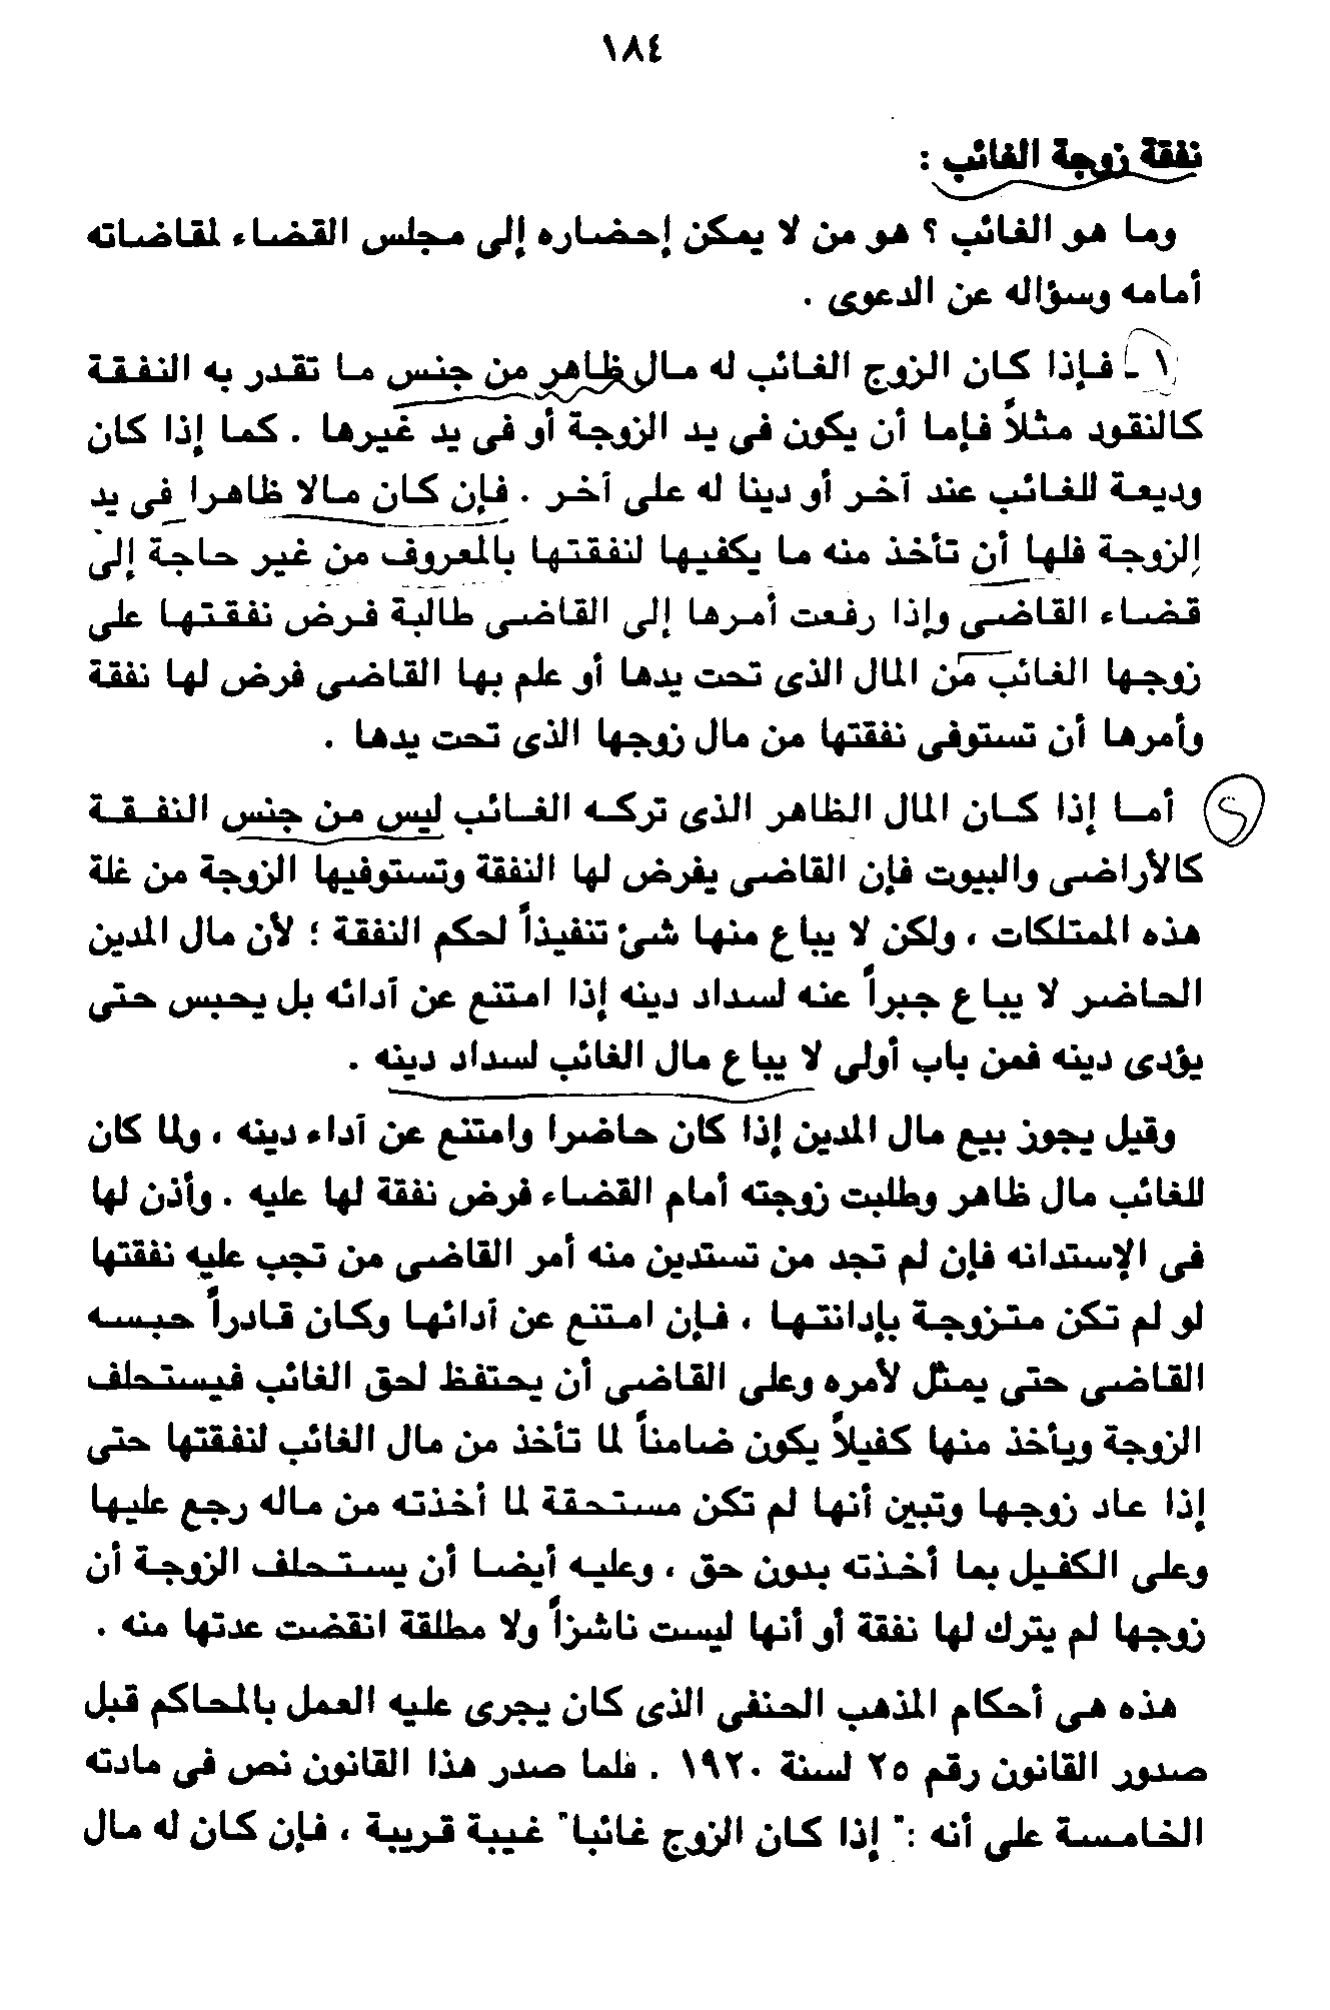 ١٨٤
نفقة زوجة الغائب :
وما هو الغائب ؟ هو من لا يمكن إحضاره إلى مجلس القضاء لمقاضاته
أمامه وسؤاله عن الدعوى .
١ ـ فإذا كان الزوج الغائب له مال ظاهر من جنس ما تقدر به النفقة
كالنقود مثلاً فإما أن يكون فى يد الزوجة أو فى يد غيرها . كما إذا كان
وديعة للغائب عند آخر أو دينا له على آخر . فإن كان مالا ظاهرا فى يد
الزوجة فلها أن تأخذ منه ما يكفيها لنفقتها بالمعروف من غير حاجة إلى
قضاء القاضى وإذا رفعت أمرها إلى القاضى طالبة فرض نفقتها على
زوجها الغائب من المال الذى تحت يدها أو علم بها القاضى فرض لها نفقة
وأمرها أن تستوفى نفقتها من مال زوجها الذى تحت يدها .
أما إذا كان المال الظاهر الذى تركه الغائب ليس من جنس النفقة
كالأراضى والبيوت فإن القاضى يفرض لها النفقة وتستوفيها الزوجة من غلة
هذه الممتلكات ، ولكن لا يباع منها شئ تنفيذاً لحكم النفقة ؛ لأن مال المدين
الحاضر لا يباع جبراً عنه لسداد دينه إذا امتنع عن آدائه بل يحبس حتى
يؤدى دينه فمن باب أولى لا يباع مال الغائب لسداد دينه .
وقيل يجوز بيع مال المدين إذا كان حاضرا وامتنع عن آداء دينه ، ولما كان
للغائب مال ظاهر وطلبت زوجته أمام القضاء فرض نفقة لها عليه . وأذن لها
فى الإستدانه فإن لم تجد من تستدين منه أمر القاضى من تجب عليه نفقتها
لو لم تكن متزوجة بإدانتها ، فإن امتنع عن آدائها وكان قادراً حبسه
القاضى حتى يمثل لأمره وعلى القاضى أن يحتفظ لحق الغائب فيستحلف
الزوجة ويأخذ منها كفيلاً يكون ضامناً لما تأخذ من مال الغائب لنفقتها حتى
إذا عاد زوجها وتبين أنها لم تكن مستحقة لما أخذته من ماله رجع عليها
وعلى الكفيل بما أخذته بدون حق ، وعليه أيضا أن يستحلف الزوجة أن
زوجها لم يترك لها نفقة أو أنها ليست ناشزاً ولا مطلقة انقضت عدتها منه .
هذه هى أحكام المذهب الحنفى الذى كان يجرى عليه العمل بالمحاكم قبل
صدور القانون رقم ٢٥ لسنة ١٩٢٠ . فلما صدر هذا القانون نص فى مادته
الخامسة على أنه :" إذا كان الزوج غائبا" غيبة قريبة ، فإن كان له مال